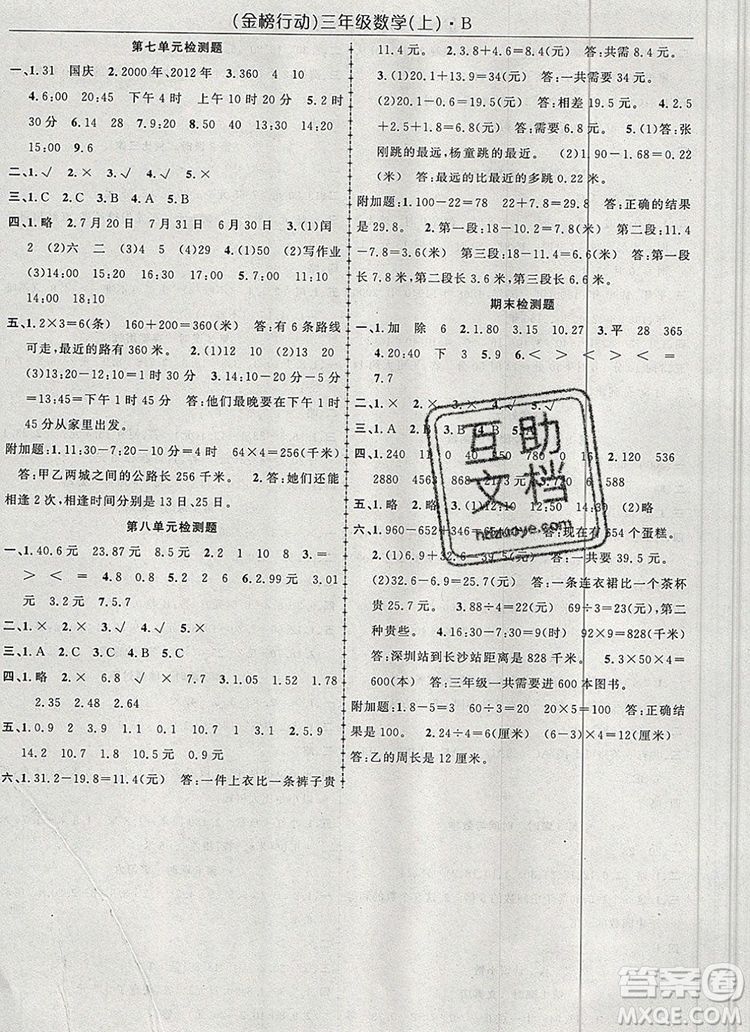 (金榜行动)三年级数学(上)·B
第七单元检测题
一、1.31 国庆 2.2000年、2012年 3.360 4 10
4.6:00 20:45 下午4时 上午10时20分 5.8时
30分 6.14 28 7.9 8.50 9.14:10 13:10
15:00 9.6
二、1.√ 2.× 3.× 4.× 5.√
三、1.C 2.A 3.A 4.A 5.B
四、1.略 2.7月20日 7月31日 8月30日 3.(1)闰
2 (2)六 二 (3)5 (4)29 4.(1)50 (2)写作业
(3)14:10 15:00 16:00 16:30 17:30 (4)13:20
14:00 18:10
五、1.2×3=6(条) 160+200=360(米) 答:有6条路线
可走,最近的路有360米。 2.(1)12 (2)10 13:20
(3)9:00 8:10 3.14:10-25分=13:45 13:45=
下午1时45分 答:他们最晚要在下午1时
45分从家里出发。
附加题:1.11:30-7:20-10=4 64×4=256(千米)
答:甲乙两城之间的公路长256千米。 2.答:她们还能
相逢2次,分别是13日、25日。
第八单元检测题
一、1.40.6元 23.87元 8.5元 2.5.09 1.2 3.1 4.=
> < = > < = 4.8 0.8 5.2 1 6.2.99元 3.01
元 3.2元 7.5.7
二、1.× 2.× 3.√ 4.√ 5.×
三、1.A 2.C 3.C 4.B 5.C
四、1.略 2.√ √ × √ 3.2.90 1.8 1.78
1.39 2.35 2.84 3.08
五、1.0.9 2 3.9 1.1 0.1 10.1 7 1 2.10.7
14.2 10.9 1.2 15.8 0.9
六、1.31.2-19.8=11.4(元) 答:一件上衣比一条裤子贵
11.4元。 2.4.8+4.2=9(元) 答:一共需要9元。
3.(1)20.1+13.9=34(元) 答:一共需要34元。
(2)20.1-0.6=19.5(元) 答:相差19.5元。 4.2.5
+2.5+1.8=6.8(元) 答:需要6.8元。 5.(1)答:张
刚跳的最远,杨童跳的最近。 (2)1.90-1.68=0.22
(米)
附加题:1.100-22=78 22+7.8=29.8 答:正确的结果
是29.8。 2.第一段:18-10.2=7.8(米) 第二段:11.4
-7.8=3.6(米) 第三段:18-11.4=6.6(米) 答:第一段
长7.8米,第二段长3.6米,第三段长6.6米。
期末检测题
一、1.加 除 6 2.1.80 3.15 10.27 3.平 28 365
4.20:40 下 3 5.9 6.< > < = > =
7.7
二、1.× 2.× 3.× 4.√ 5.√
三、1.C 2.
四、1.240 0 40 150 5 9 2.120 536
2880 438
五、1.略 2.略 3.(1)12:10 12:50 (2)略
六、1.960-652+
答:现在有654个蛋糕。
2.(1)6.2+10.9=17.1(元) 答:一共需17.1元。
(2)32.4-6.2=26.2(元) 答:一条连衣裙比一个茶杯
贵26.2元。 3.88÷4=22(元) 69÷3=23(元) 答:第二
种贵些。 4.16:30-7:30=9(时) 92×9=828(千米)
答:深圳站到长沙站距离是828千米。 5.3×50×4=
600(本) 答:三年级一共需要进600本图书。
附加题:1.8-5=3 60÷3=20 20×5=100 答:正确的
结果是100。 2.24÷4=6(厘米) (6-4)×6=12(厘
米) 答:乙的周长是12厘米。
互助
文档
答案圈
MXQE.COM